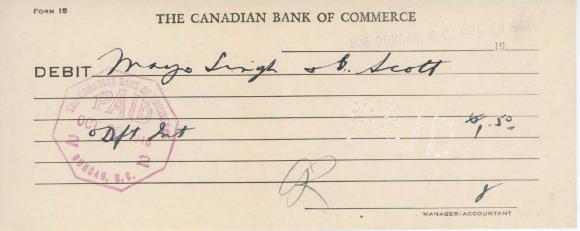 FORM 15
THE CANADIAN BANK OF COMMERCE
DUNCAN, B.C. OCT
19
DEBIT Mayo Singh & C. Scott
THE CANADIAN BANK OF COMMERCE
PAID
OCT
2 2
DUNCAN, B.C.
Dft Int
PAID
MANAGER/ACCOUNTANT